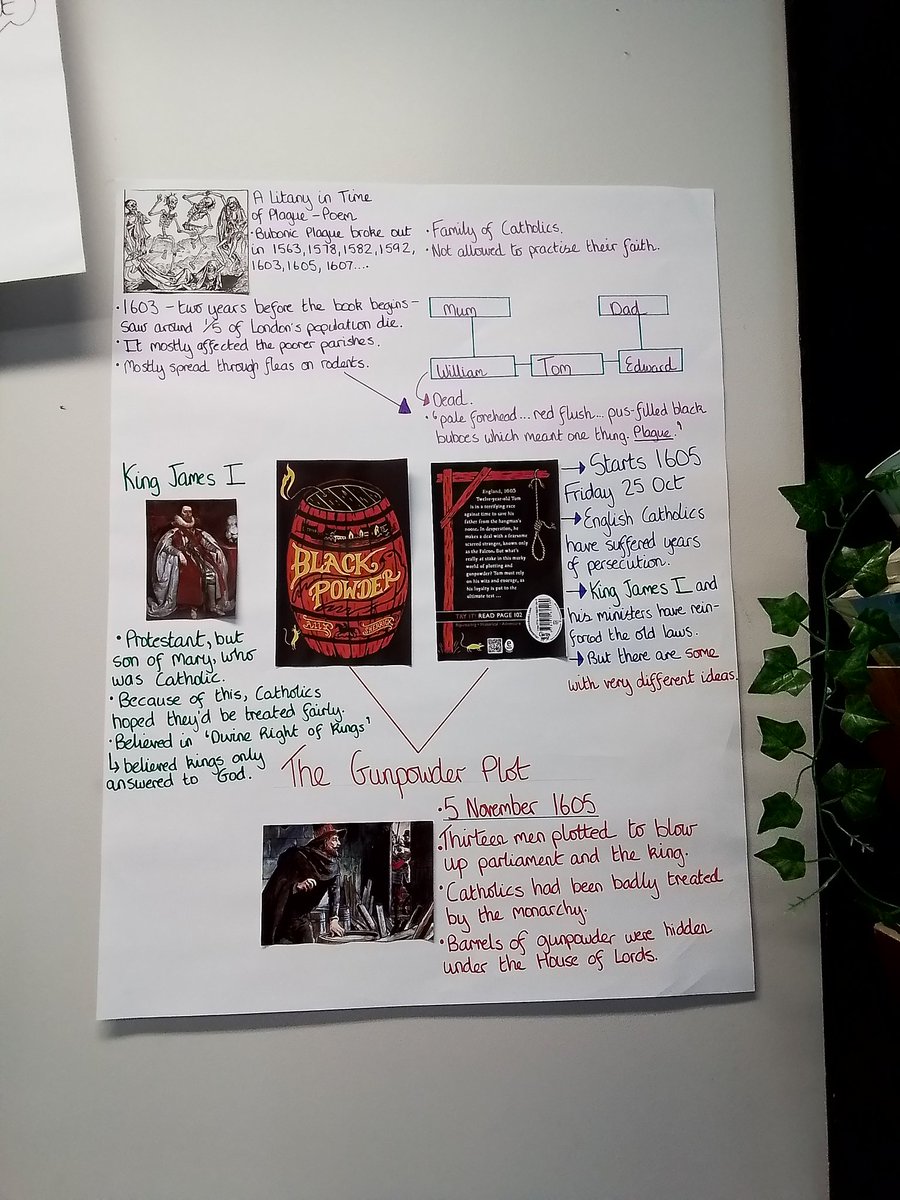 A Litany in Time
of Plague - Poem
• Bubonic Plague broke out
in 1563, 1578, 1582, 1592,
1603, 1605, 1607....
• Family of Catholics.
• Not allowed to practise their faith.
• 1603 - two years before the book begins -
saw around 1/5 of London's population die.
• It mostly affected the poorer parishes.
• Mostly spread through fleas on rodents.
Mum
Dad
William
Tom
Edward
Dead.
• 'pale forehead... red flush... pus-filled black
buboes which meant one thing. Plague.'
King James I
• Protestant, but
son of Mary, who
was Catholic.
• Because of this, Catholics
hoped they'd be treated fairly.
• Believed in 'Divine Right of Kings'
↳ believed kings only
answered to God.
BLACK
POWDER
ALLY
SHERRICK
England, 1605
Twelve-year-old Tom
is in a terrifying race
against time to save his
father from the hangman's
noose. In desperation, he
makes a deal with a fearsome
scarred stranger, known only
as the Falcon. But what's
really at stake in this murky
world of plotting and
gunpowder? Tom must rely
on his wits and courage, as
his loyalty is put to the
ultimate test ...
TRY IT! READ PAGE 102
→ Starts 1605
Friday 25 Oct
→ English Catholics
have suffered years
of persecution.
→ King James I and
his ministers have rein-
forced the old laws.
→ But there are some
with very different ideas.
The Gunpowder Plot
• 5 November 1605
• Thirteen men plotted to blow
up parliament and the king.
• Catholics had been badly treated
by the monarchy.
• Barrels of gunpowder were hidden
under the House of Lords.